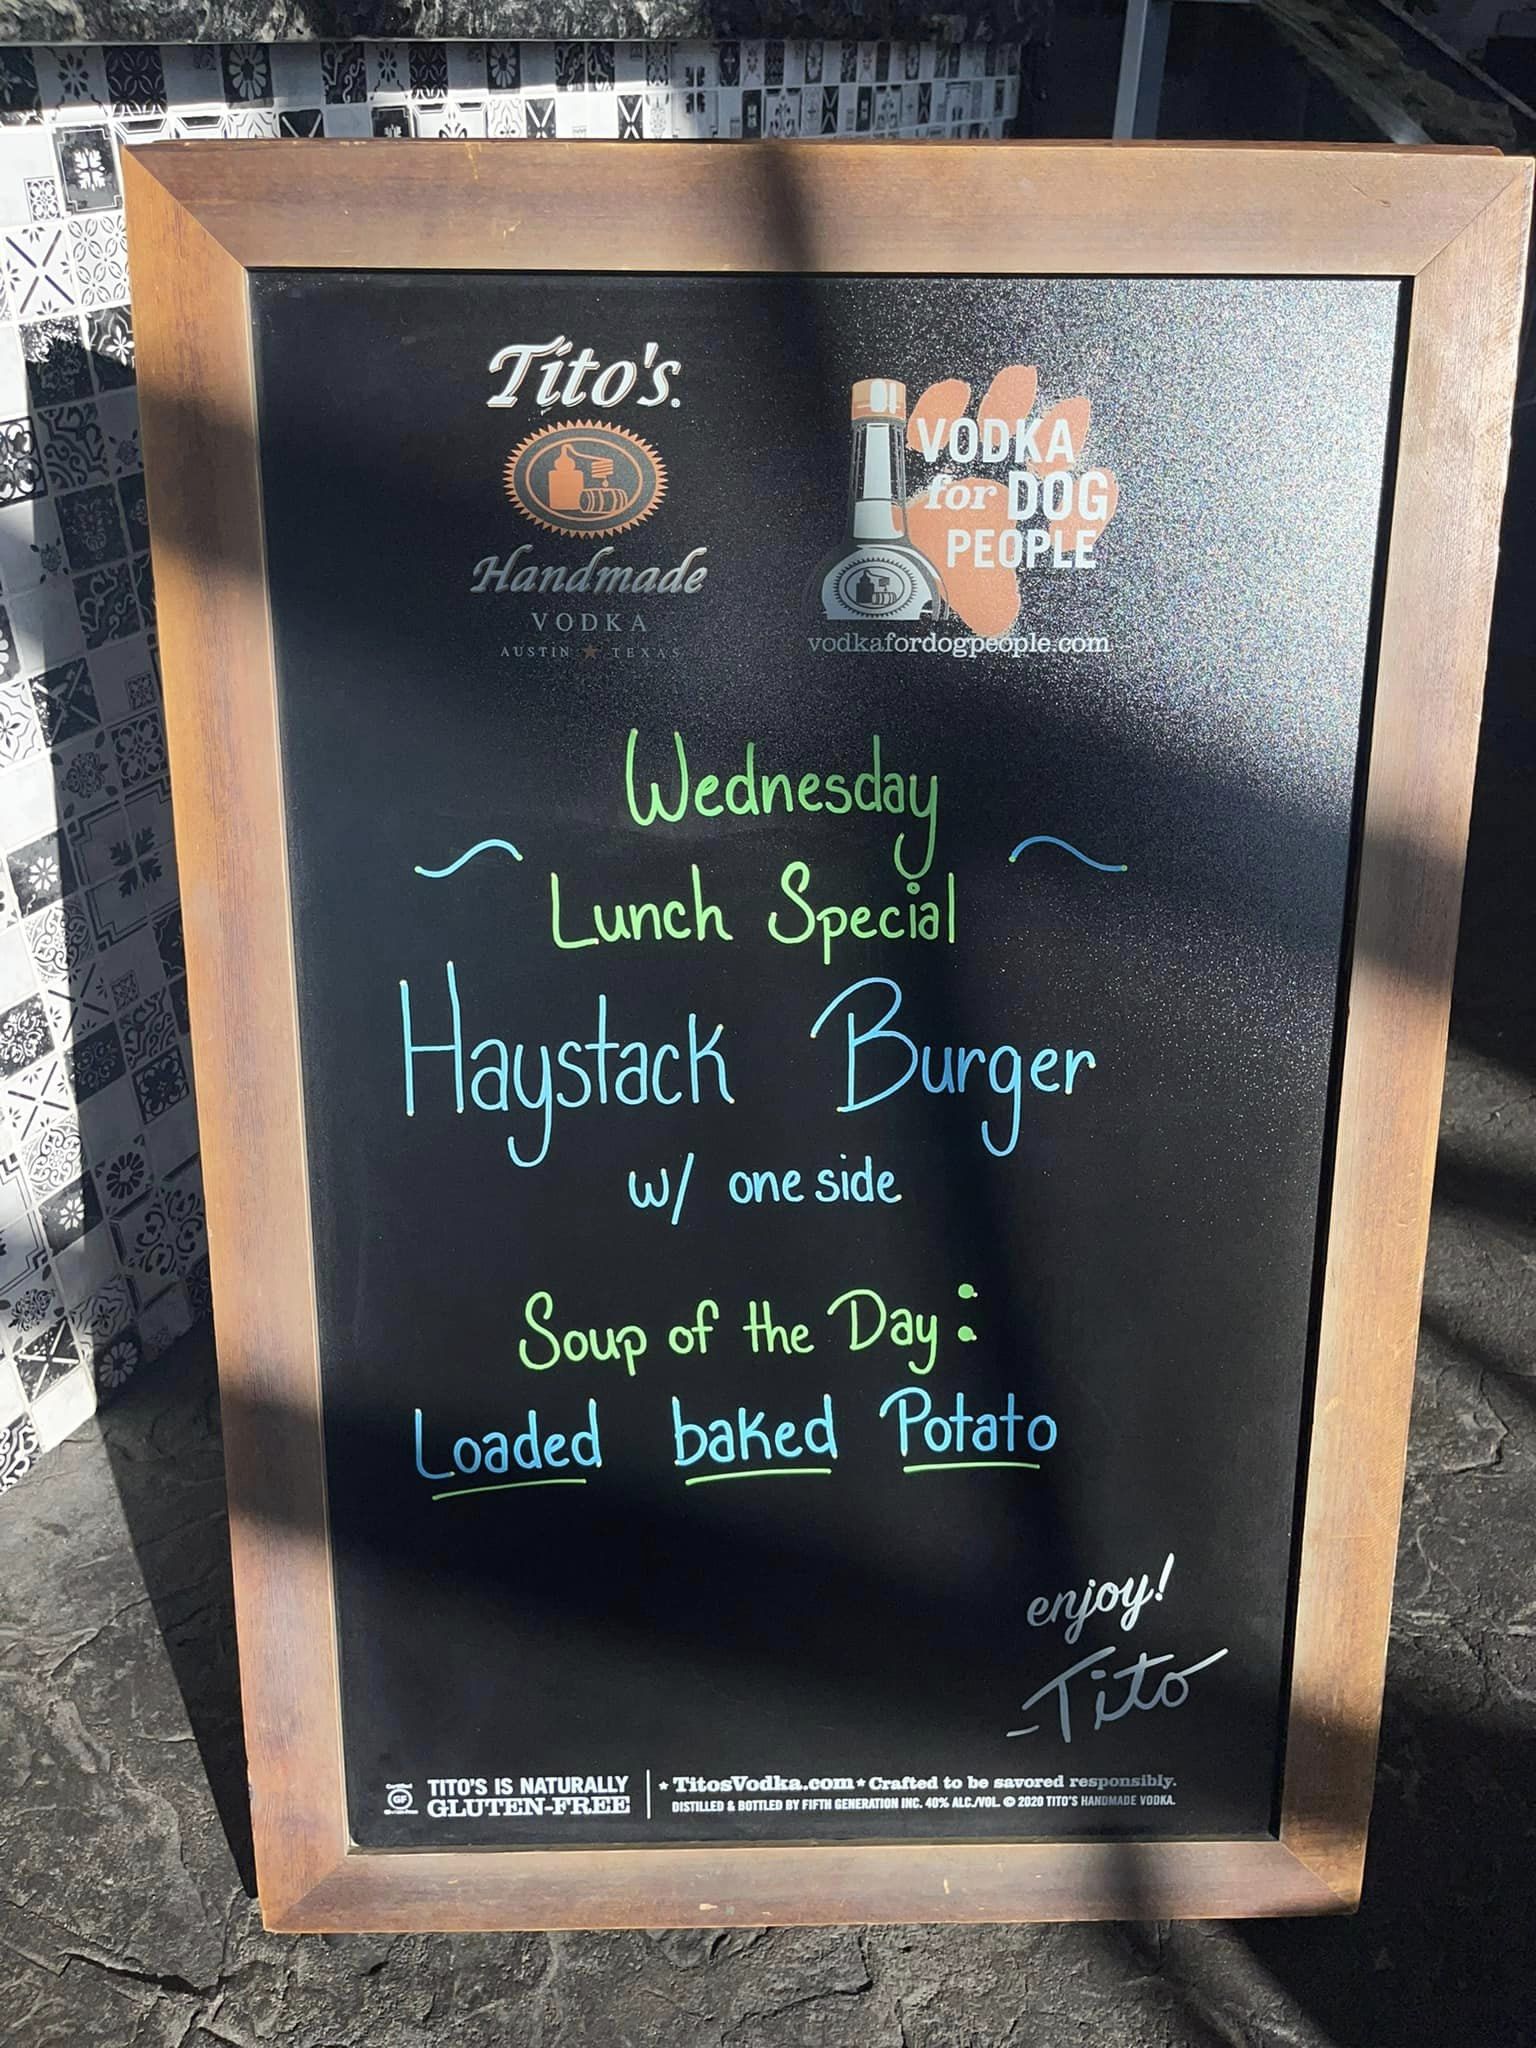 Tito's
Handmade
VODKA
AUSTIN ★ TEXAS
VODKA
for DOG
PEOPLE
vodkafordogpeople.com
Wednesday
Lunch Special
Haystack Burger
w/ one side
Soup of the Day:
Loaded baked Potato
enjoy!
-Tito
Certified
GF
TITO'S IS NATURALLY
GLUTEN-FREE
★ TitosVodka.com ★ Crafted to be savored responsibly.
DISTILLED & BOTTLED BY FIFTH GENERATION INC. 40% ALC./VOL. © 2020 TITO'S HANDMADE VODKA.